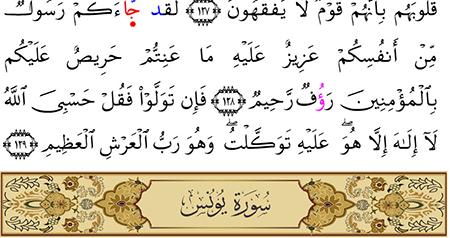 قُلُوبَهُم بِأَنَّهُمْ قَوْمٌ لَّا يَفْقَهُونَ ﴿١٢٧﴾ لَقَدْ جَآءَكُمْ رَسُولٌ
مِّنْ أَنفُسِكُمْ عَزِيزٌ عَلَيْهِ مَا عَنِتُّمْ حَرِيصٌ عَلَيْكُم
بِٱلْمُؤْمِنِينَ رَءُوفٌ رَّحِيمٌ ﴿١٢٨﴾ فَإِن تَوَلَّوْا۟ فَقُلْ حَسْبِىَ ٱللَّهُ
لَآ إِلَٰهَ إِلَّا هُوَ ۖ عَلَيْهِ تَوَكَّلْتُ ۖ وَهُوَ رَبُّ ٱلْعَرْشِ ٱلْعَظِيمِ ﴿١٢٩﴾
سُورَةُ يُونُسَ